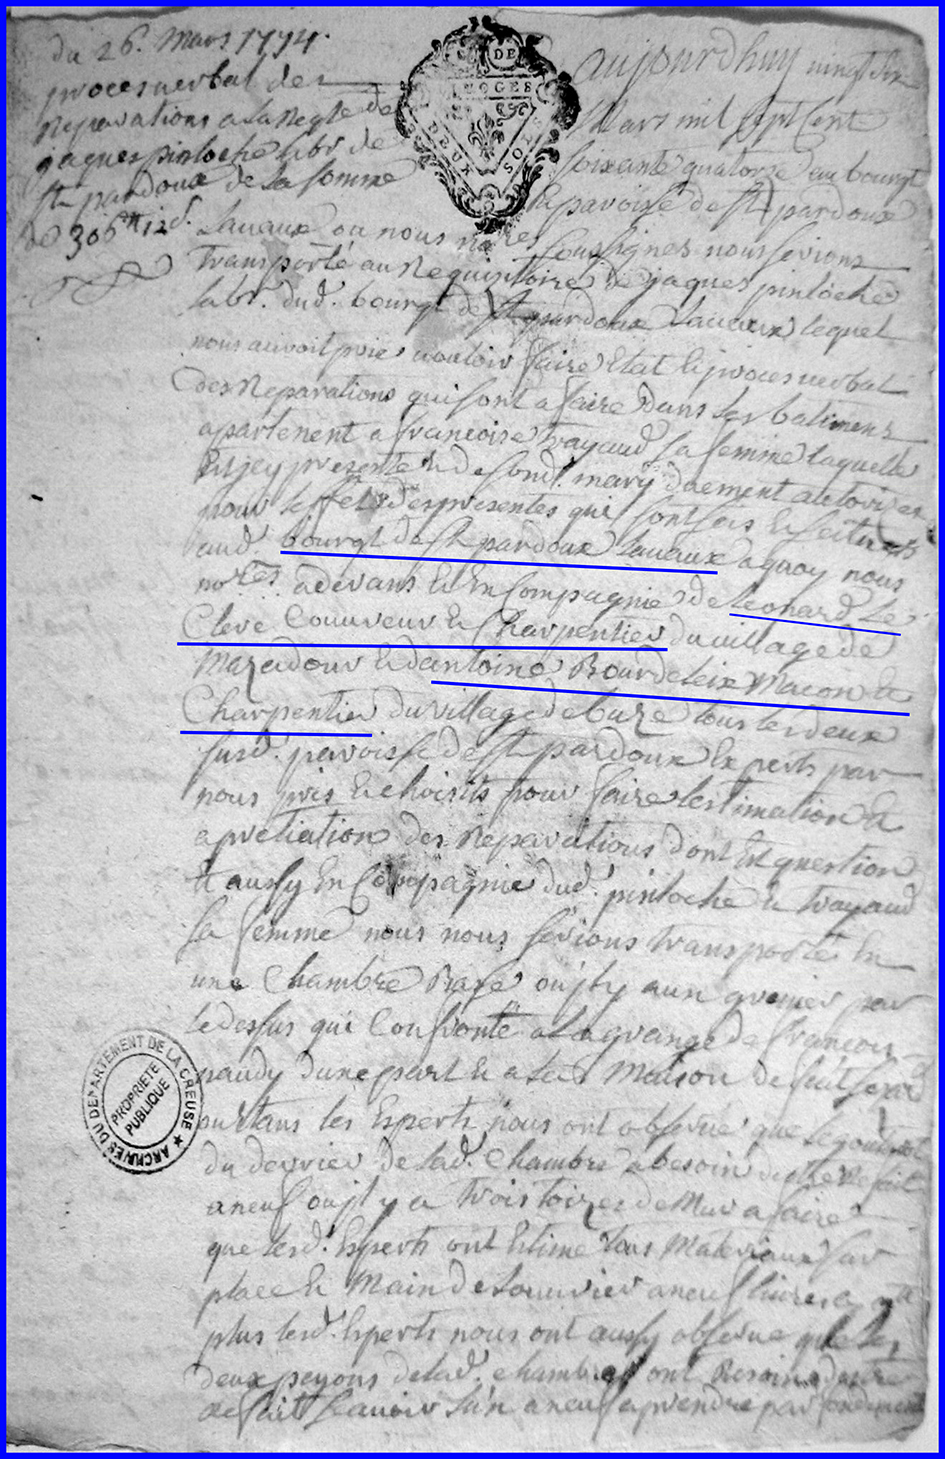 du 26. Mars 1774.
proces verbal des
reparations a la Reqte de
jaques pinloche labr. de
st pardoux de la somme
de 306tt 12d.
DE
LIMOGES
DEUX SOLS
aujourdhuy vingt six
Mars mil sept Cent
soixante quatorze au bourgt
et paroisse de st pardoux
Lavaux ou nous nores soussignes nous serions
transporté au Requisitoire de jaques pinloche
labr. dud. bourgt de st pardoux Lavaux lequel
nous auroit prié vouloir faire Etat et proces verbal
des Reparations qui sont a faire dans les batimens
apartenent a francoise trayaud sa femme laquelle
Ici presente et de sond. mary duement autorizee
pour leffet des presentes qui sont fais et faitures
aud. bourgt de st pardoux Lavaux aquoy nous
nores. adevans et En Compagnie de leonard Le
Clere Couvreur et Charpentier du village de
Mazadour et dantoine Bourdeleix Macon et
Charpentier du village de buze tous les deux
susd. paroisse de st pardoux Experts par
nous pris et choisits pour faire lestimation et
apretiation des Reparations dont Est question
Et aussy En Compagnie dud. pinloche et trayaud
sa femme nous nous serions transporté En
une Chambre Base ou jl y a un grenier par
le dessus qui Confronte a la grange de francois
naudy dune part et a la Maison de
les Experts nous ont observé que
du derrier de lad. Chambre a besoin detre Refait
a neuf ou jl y a trois toizes de Mur a faire
que lesd. Experts ont Estimé tous Materiaux sur
place et Main de Louvrier a neuf livres cy 9tt
plus lesd. Experts nous ont aussy observé que les
deux peyons de lad. chambre ont Besoin detre
Refait scavoir lun a neuf a prendre par fondement
ARCHIVES DU DEPARTEMENT DE LA CREUSE
PROPRIÉTÉ
PUBLIQUE